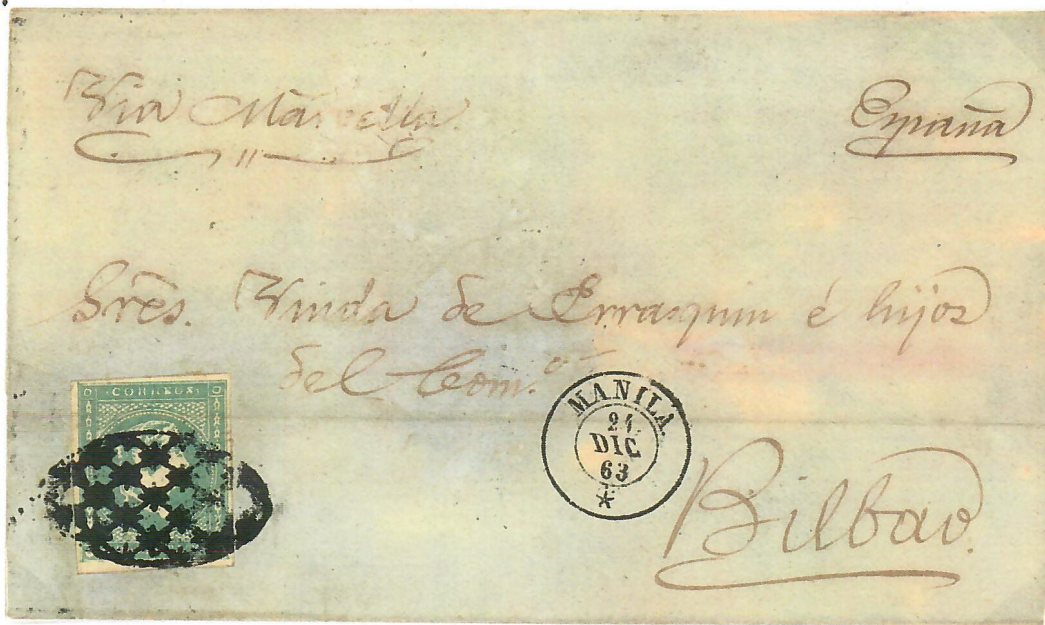 Via Marsella
España
Sres. Viuda de Errasquin é hijos
del Com.o
CORREOS
MANILA
DIC
63
Bilbao.